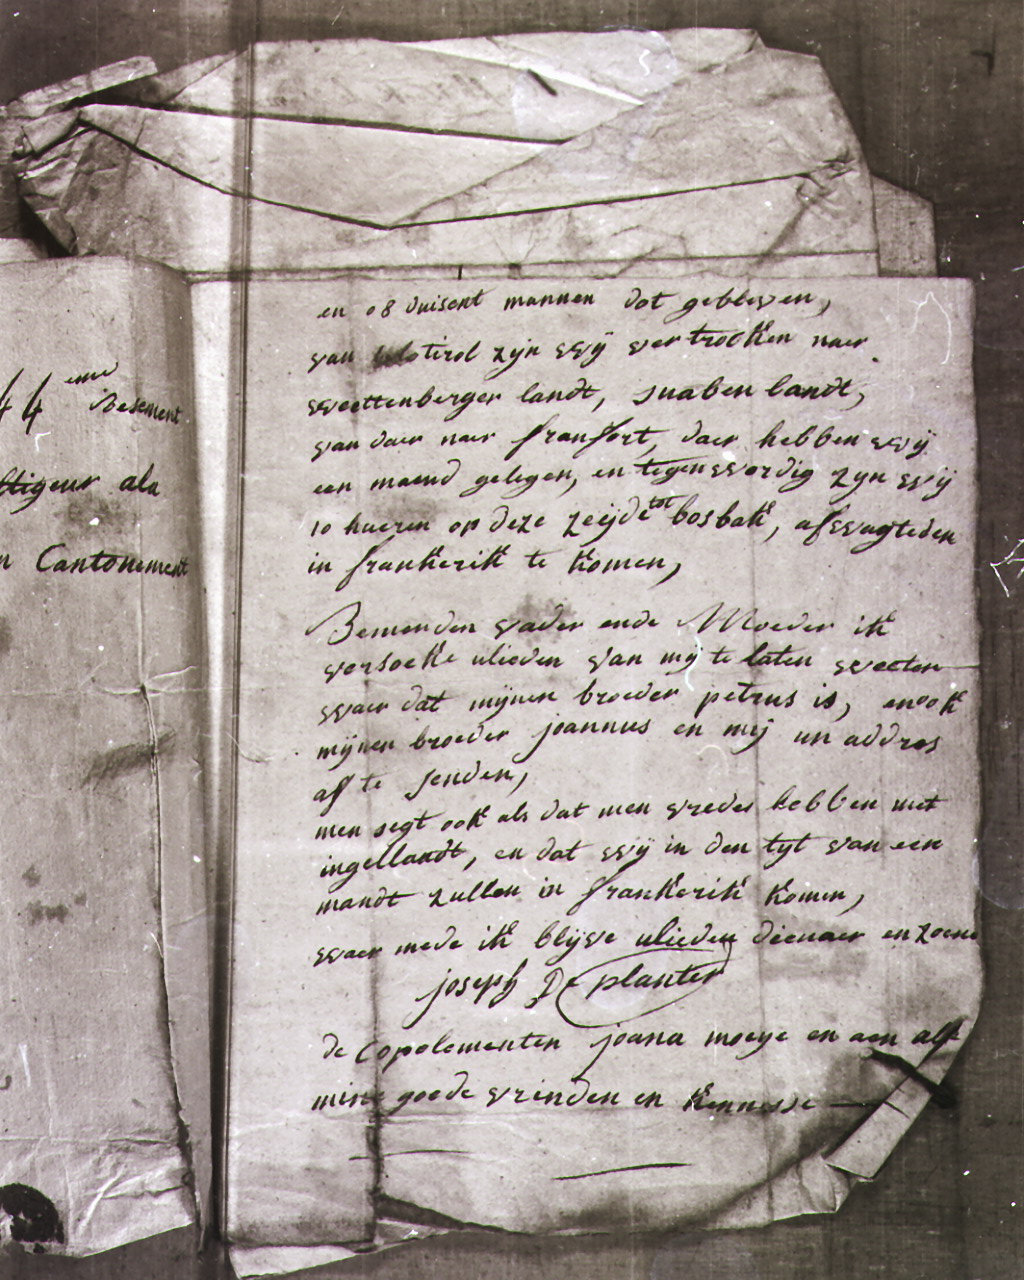 44 eme Resement
ltigeur ala
n Cantonement
en 08 duisent mannen dot gebleven,
van tirol zijn wij vertrocken naer
weettenberger landt, suabenlandt,
van daer naer franfort, daer hebben wij
een maend gelegen, en tegenwordig zijn wij
10 hueren op deze zeijde tot bosbak, afwagteden
in frankerik te komen,
Bemenden vader ende Moeder ik
versoeke ulieden van mij te laten weeten
waer dat mijnen broeder petrus is, en ook
mijnen broeder joannus en mij un addres
af te senden,
men segt ook als dat men vredes hebben met
ingellandt, en dat wij in den tyt van een
mandt zullen in frankerik komen,
waer mede ik blijve ulieden dienaer en zoene
joseph De planter
de Copelementen joana moeye en aen alle
mine goede vrinden en kennesse